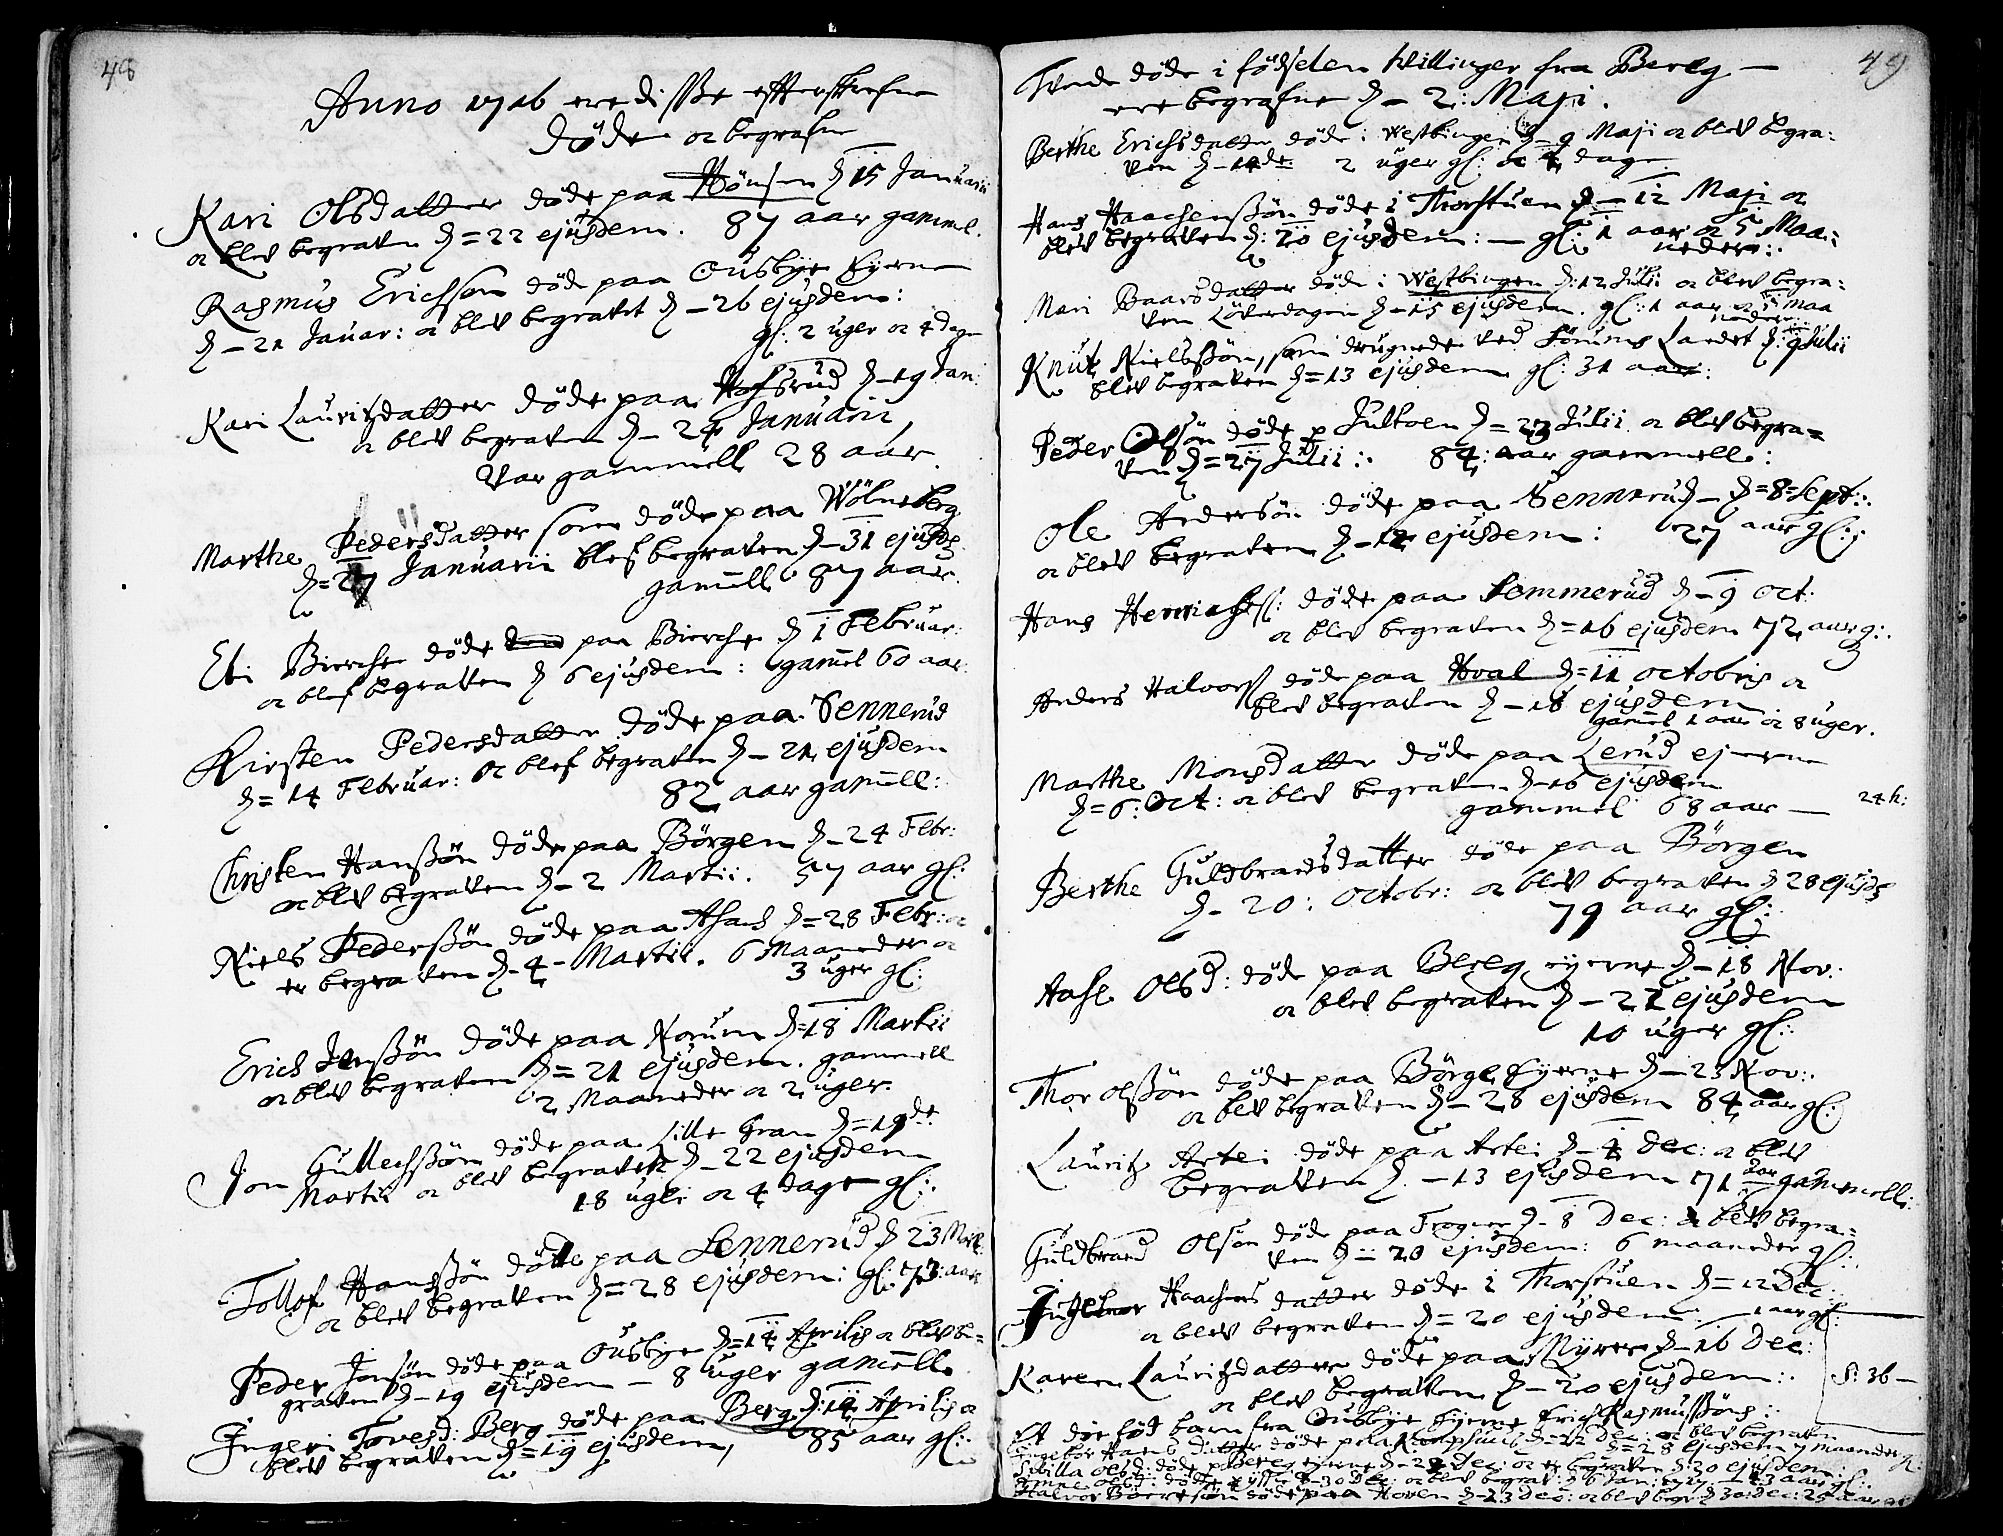 48
Anno 1716 ere disse effterskrefne
døde oc begrafne
Kari Olsdatter døde paa Hønsen d 15 Januarii
oc blev begraven d = 22 ejusdem. 87 aar gammel.
Rasmus Erichsøn død paa Ousbye Eyerne
d – 21 Januar: oc blev begravet d – 26 ejusdem:
gl: 2 uger oc 4 dage
Kari Lauritzdatter døde paa Hofsrud d – 19 Jan:
oc blev begraven d – 24 Januarii,
var gammell 28 aar.
Marthe Pedersdatter som døde paa Wølneberg
d = 27 Januarii blef begraven d – 31 ejusd
gamell 87 aar.
Eli Bierche døde paa Bierche d 1 Februar:
oc blef begraven d 6 ejusdem: gamel 60 aar.
Kirsten Pedersdatter døde paa Sennerud
d = 14 Februar: oc blef begraven d – 21 ejusdem
82 aar gamell:
Christen Hanssøn døde paa Børgen d – 24 Febr:
oc blev begraven d – 2 Martii. 57 aar gl:
Niels Pederssøn døde paa Asand d = 28 Febr: oc
er begraven d – 4 – Martii. 6 Maaneder oc
3 uger gl:
Erich Jenssøn døde paa Norum d = 18 Martii
oc blev begraven d = 21 ejusdem. gammell
2 Maaneder oc 2 uger.
Jon Gullechssøn døde paa Lille Gran d = 19de
Martii oc blev begraven d – 22 ejusdem
18 uger oc 4 dage gl:
Tollof Hanssøn døde paa Sennerud d 23 Mart:
oc blev begraven d = 28 ejusdem: gl: 73: aar
Peder Jonsøn døde paa Ousbye d = 14 Aprilis oc blev be=
graven d – 19 ejusdem – 8 uger gamell
Ingeri Toresd: Berg døde paa Berg d: 14 Aprilis oc
blev begraven d = 19 ejusdem, 85 aar gl:
49
Tvende døde i fødselen tvillinger fra Berg –
ere begrafne d – 2: Maji.
Berthe Erichsdatter døde i Westbingen d = 9 Maji oc blev begra:
ven d – 14de 2 uger gl: oc 4 dage
Hans Haachenssøn døde i Thorstuen d – 12 Maji oc
blev begraven d: 20 ejusdem: – gl: 1 aar oc 5 Maa:
neder:
Mari Baarsdatter døde i Westbingen d: 12 Julii oc blev begra:
ven Løverdagen d – 15 ejusdem. gl: 1 aar oc 5 maa
neder
Knut Nielssøn, som drugnede ved Sørums Landet d: 9 Julii
blev begraven d = 13 ejusdem gl: 31 aar:
Peder Olsøn døde p Jultoen d = 23 Julii oc blev begra=
ven d = 27 Julii: 84: aar gammell:
Ole Andersøn døde paa Sennerud – d = 8 = Sept:
oc blev begraven d – 12 ejusdem: 27 aar gl:
Hans Henrichss: døde paa Semmerud d – 9 Oct:
oc blev begraven d = 16 ejusdem 72 aar g:
Anders Halvorss døde paa Hval d = 11 octobris oc
blev begraven d – 18 ejusdem
gamel 1 aar oc 8 uger.
Marthe Monsdatter døde paa Lerud ejerne
d = 6: Oct: oc blev begraven d – 16 ejusdem
gammel 68 aar – 24 h:
Berthe Guldbrandsdatter døde paa Børgen
d – 20: Octobr: oc blev begraven d 28 ejusd
79 aar gl:
Aase Olsd: døde paa Berg eyerne d – 18 Nov:
oc blev begraven d – 21 ejusdem
10 uger gl:
Thor Olssøn døde paa Børge Eyerne d – 23 Nov:
oc blev begraven d – 28 ejusdem 84 aar gl:
Lauritz Artei døde paa Artei d – 4 Dec: oc blev
begraven d. – 13 ejusdem 71 aar gammell:
Guldbrand Olsøn døde paa Frogner d – 8 Dec: oc blev begra=
ven d = 20 ejusdem: 6 maaneder gl:
Haachensdatter døde i Thorstuen d = 12 Dec:
oc blev begraven d = 20 ejusdem: 1 aar gl:
Karen Lauritzdatter døde paa Myrer d – 16 Dec:
oc blev begraven d – 20 ejusdem: S: 36 –
Et død fød barn fra Ousbye Eyerne Erich Rasmussøns:
døde paa d = 22 Dec: oc blev begraven
d = 28 ejusdem 7 maaneder gl:
Sibilla Olsd: døde p Berg eyerne d – 29 Dec: oc er begraven d 30 ejusdem
døde d – 30 Dec: oc blev begrav: d 6 Jan:
Halvor døde paa Hoven d – 23 Dec: oc blev begr: d 30: dec: 25 aar gl